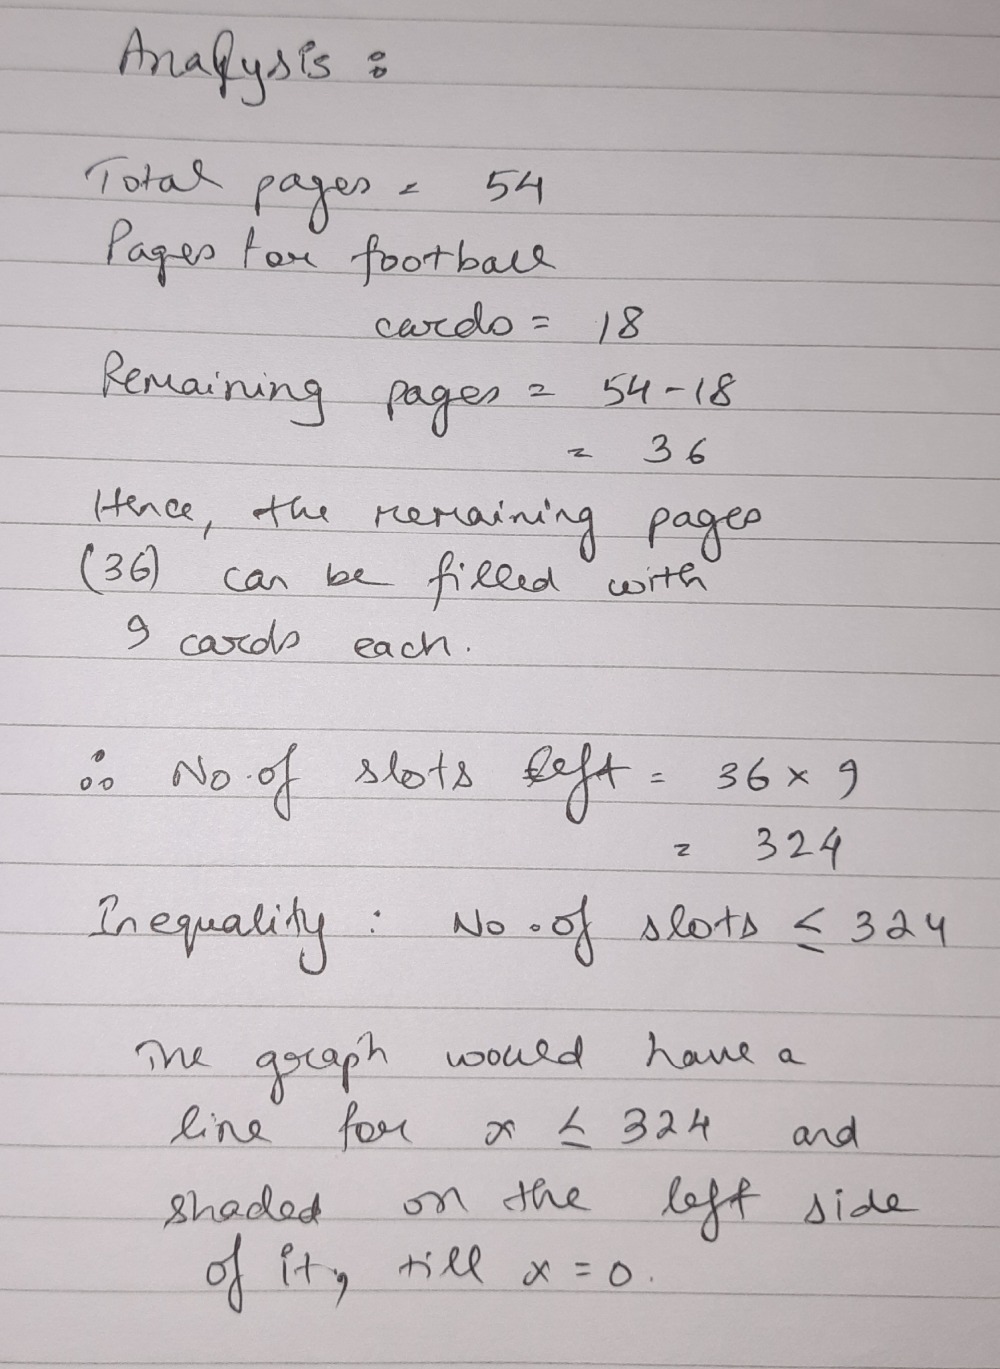 Analysis :
Total pages = 54
Pages for football
cards = 18
Remaining pages = 54-18
= 36
Hence, the remaining pages
(36) can be filled with
9 cards each.
∴ No. of slots left = 36 x 9
= 324
Inequality : No. of slots ≤ 324
The graph would have a
line for x ≤ 324 and
shaded on the left side
of it, till x = 0.